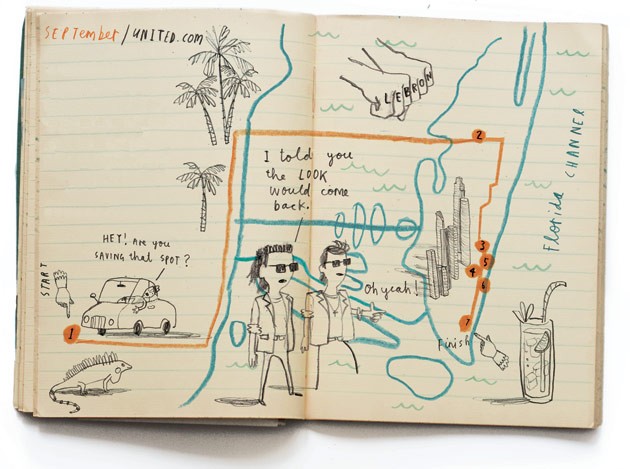 SEPTEMBER/UNITED.COM
LEBRON
2
I told you
the LOOK
would come
back.
Florida CHANNER
HEY! ARE you
SAVING that SPOT?
START
3
5
4
6
Oh yeah!
1
7
Finish